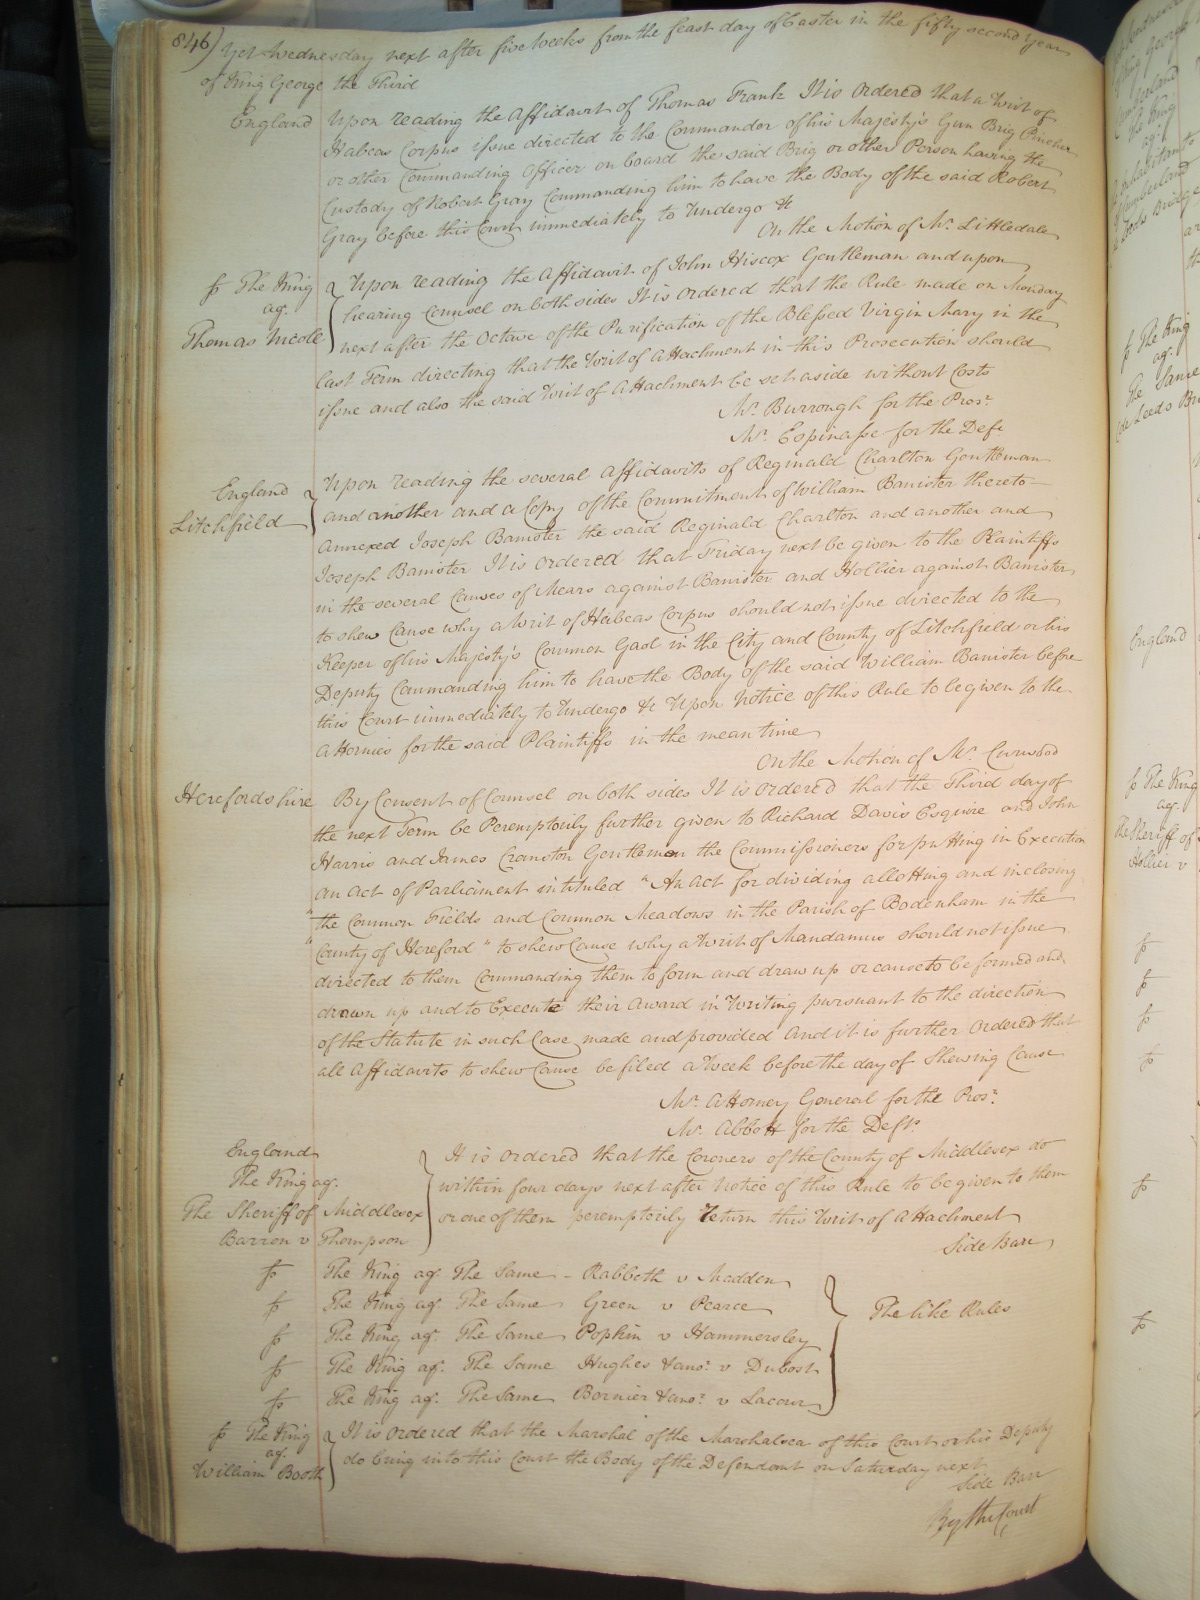 846) Yet Wednesday next after five Weeks from the feast day of Easter in the fifty second Year
of King George the Third
England Upon reading the Affidavit of Thomas Frank It is Ordered that a Writ of
Habeas Corpus issue directed to the Commander of his Majesty's Gun Brig Pincher
or other Commanding Officer on board the said Brig or other Person having the
Custody of Robert Gray Commanding him to have the Body of the said Robert
Gray before this Court immediately to Undergo &c
On the Motion of Mr. Littledale
The King
agt.
Thomas Nicole
Upon reading the Affidavit of John Hiscox Gentleman and upon
hearing Counsel on both sides It is Ordered that the Rule made on Monday
next after the Octave of the Purification of the Blessed Virgin Mary in the
last Term directing that the Writ of Attachment in this Prosecution should
issue and also the said Writ of Attachment be set aside without Costs
Mr. Burrough for the Prosr.
Mr. Espinasse for the Deft.
England
Litchfield
Upon reading the several Affidavits of Reginald Charlton Gentleman
and another and a Copy of the Commitment of William Banister thereto
annexed Joseph Banister the said Reginald Charlton and another and
Joseph Banister It is Ordered that Friday next be given to the Plaintiffs
in the several Causes of Mears against Banister and Hollier against Banister
to shew Cause why a Writ of Habeas Corpus should not issue directed to the
Keeper of his Majesty's Common Gaol in the City and County of Litchfield or his
Deputy Commanding him to have the Body of the said William Banister before
this Court immediately to Undergo &c Upon Notice of this Rule to be given to the
Attornies for the said Plaintiffs in the mean time
On the Motion of Mr. Curwood
Herefordshire By Consent of Counsel on both sides It is Ordered that the Third day of
the next Term be Peremptorily further given to Richard Davis Esquire and John
Harris and James Cranston Gentlemen the Commissioners for putting in Execution
an Act of Parliament intituled "An Act for dividing allotting and inclosing
" the Common Fields and Common Meadows in the Parish of Bodenham in the
" County of Hereford" to shew Cause why a Writ of Mandamus should not issue
directed to them Commanding them to form and draw up or cause to be formed and
drawn up and to Execute their Award in Writing pursuant to the direction
of the Statute in such Case made and provided And it is further Ordered that
all Affidavits to shew Cause be filed a Week before the day of Shewing Cause
Mr. Attorney General for the Prosr.
Mr. Abbott for the Defts.
England
The King agt.
The Sheriff of Middlesex
Barron v Thompson
It is Ordered that the Coroners of the County of Middlesex do
within four days next after Notice of this Rule to be given to them
or one of them peremptorily return this Writ of Attachment
Side Barr
The King agt. The Same - Rabbeth v Madden
The King agt. The Same Green v Pearce
The King agt. The Same Popkin v Hammersley
The King agt. The Same Hughes & anor. v Dubost
The King agt. The Same Bornier & anor. v Lacour
The like Rules
The King
agt.
William Booth
It is Ordered that the Marshal of the Marshalsea of this Court or his Deputy
do bring into this Court the Body of the Defendant on Saturday next
Side Barr
By the Court
The King
agt.
The Same
England
The King
agt.
The Sheriff of
Hollier v